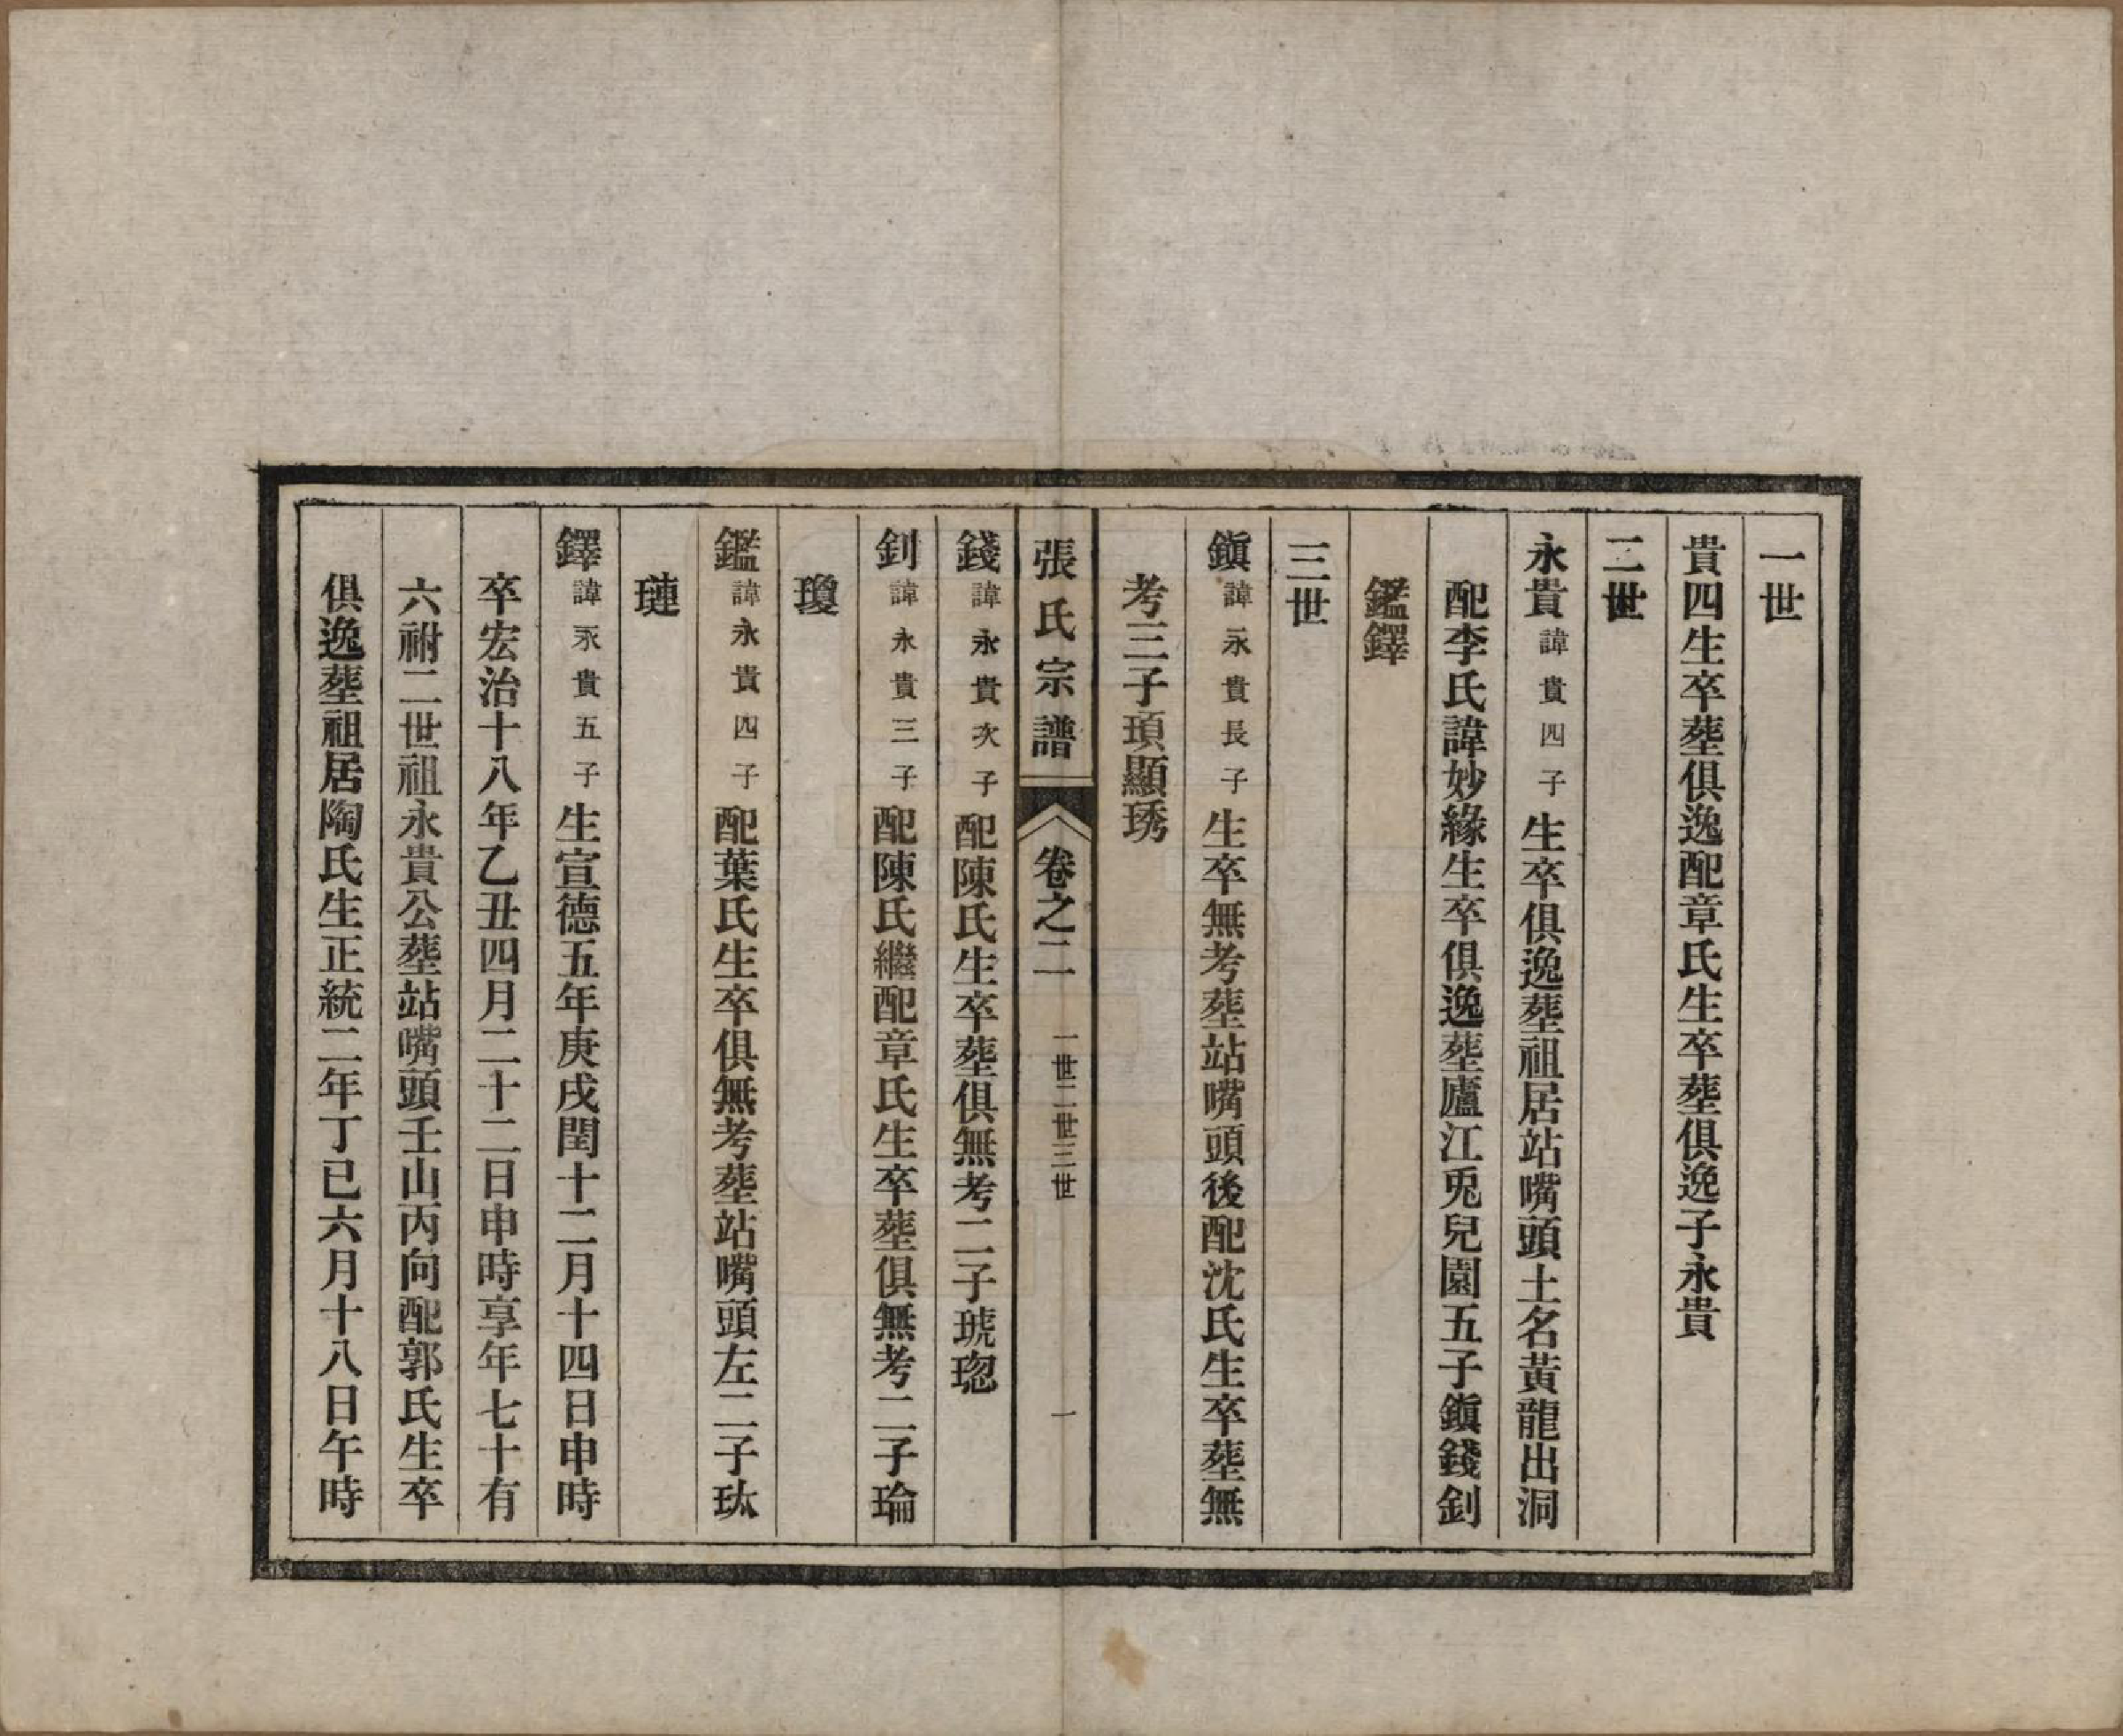 一世
貴四生卒葬俱逸配章氏生卒葬俱逸子永貴
二世
永貴諱貴四子生卒俱逸葬祖居站嘴頭土名黃龍出洞
配李氏諱妙緣生卒俱逸葬廬江兎兒園五子鎭錢釗
鑑鐸
三世
鎭諱永貴長子生卒無考葬站嘴頭後配沈氏生卒葬無
考三子頊顯琇
張氏宗譜 卷之二 一世二世三世 一
錢諱永貴次子配陳氏生卒葬俱無考二子琥璁
釗諱永貴三子配陳氏繼配章氏生卒葬俱無考二子瑜
瓊
鑑諱永貴四子配葉氏生卒俱無考葬站嘴頭左二子
璉
鐸諱永貴五子生宣德五年庚戌閏十二月十四日申時
卒宏治十八年乙丑四月二十二日申時享年七十有
六祔二世祖永貴公葬站嘴頭壬山丙向配郭氏生卒
俱逸葬祖居陶氏生正統二年丁巳六月十八日午時